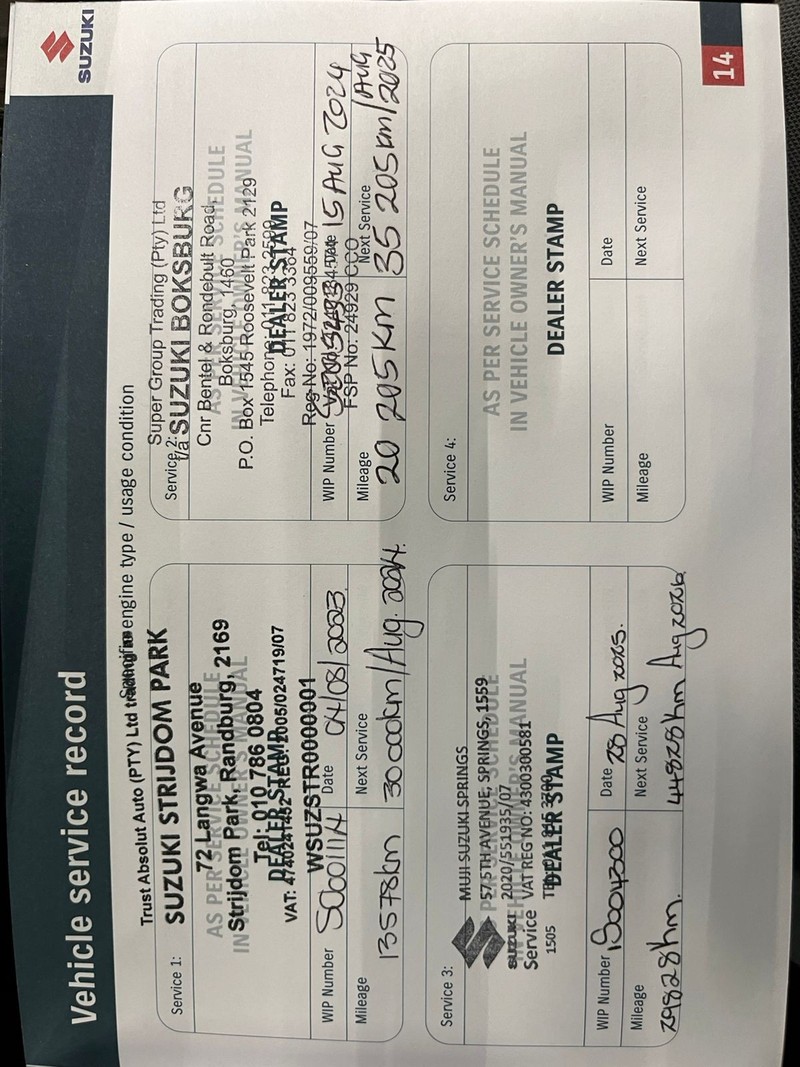 Vehicle service record
SUZUKI
engine type / usage condition
Trust Absolut Auto (PTY) Ltd
Service 1:
SUZUKI STRIJDOM PARK
72 Langwa Avenue
AS PER SERVICE SCHEDULE
Strijdom Park, Randburg, 2169
IN VEHICLE OWNER'S MANUAL
Tel: 010 786 0804
DEALER STAMP
VAT: 4740241452 REG: 2005/024719/07
WSUZSTR0000001
WIP Number
Date 04/08/2023
Mileage 13578km
Next Service 30000km/Aug. 2024.
Super Group Trading (Pty) Ltd
Service 2:
t/a SUZUKI BOKSBURG
Cnr Bentel & Rondebult Road,
AS PER SERVICE SCHEDULE
Boksburg, 1460
IN VEHICLE OWNER'S MANUAL
P.O. Box 1545 Roosevelt Park 2129
Telephone: 011 823
DEALER STAMP
Fax: 011 823 3364
Reg No: 1972/009559/07
WIP Number
Date 15 AUG 2024
FSP No: 24929 CCO
Mileage 20 205 Km
Next Service 35 205 Km/Aug 2025
Service 3:
MUJI SUZUKI SPRINGS
57, 5TH AVENUE, SPRINGS, 1559
AS PER SERVICE SCHEDULE
2020/551935/07
SUZUKI
IN VEHICLE OWNER'S MANUAL
Service
VAT REG NO: 4300300581
1505
DEALER STAMP
WIP Number
Date 28 Aug 2025.
Mileage 29828km.
Next Service 44828km Aug 2026
Service 4:
AS PER SERVICE SCHEDULE
IN VEHICLE OWNER'S MANUAL
DEALER STAMP
WIP Number
Date
Mileage
Next Service
14